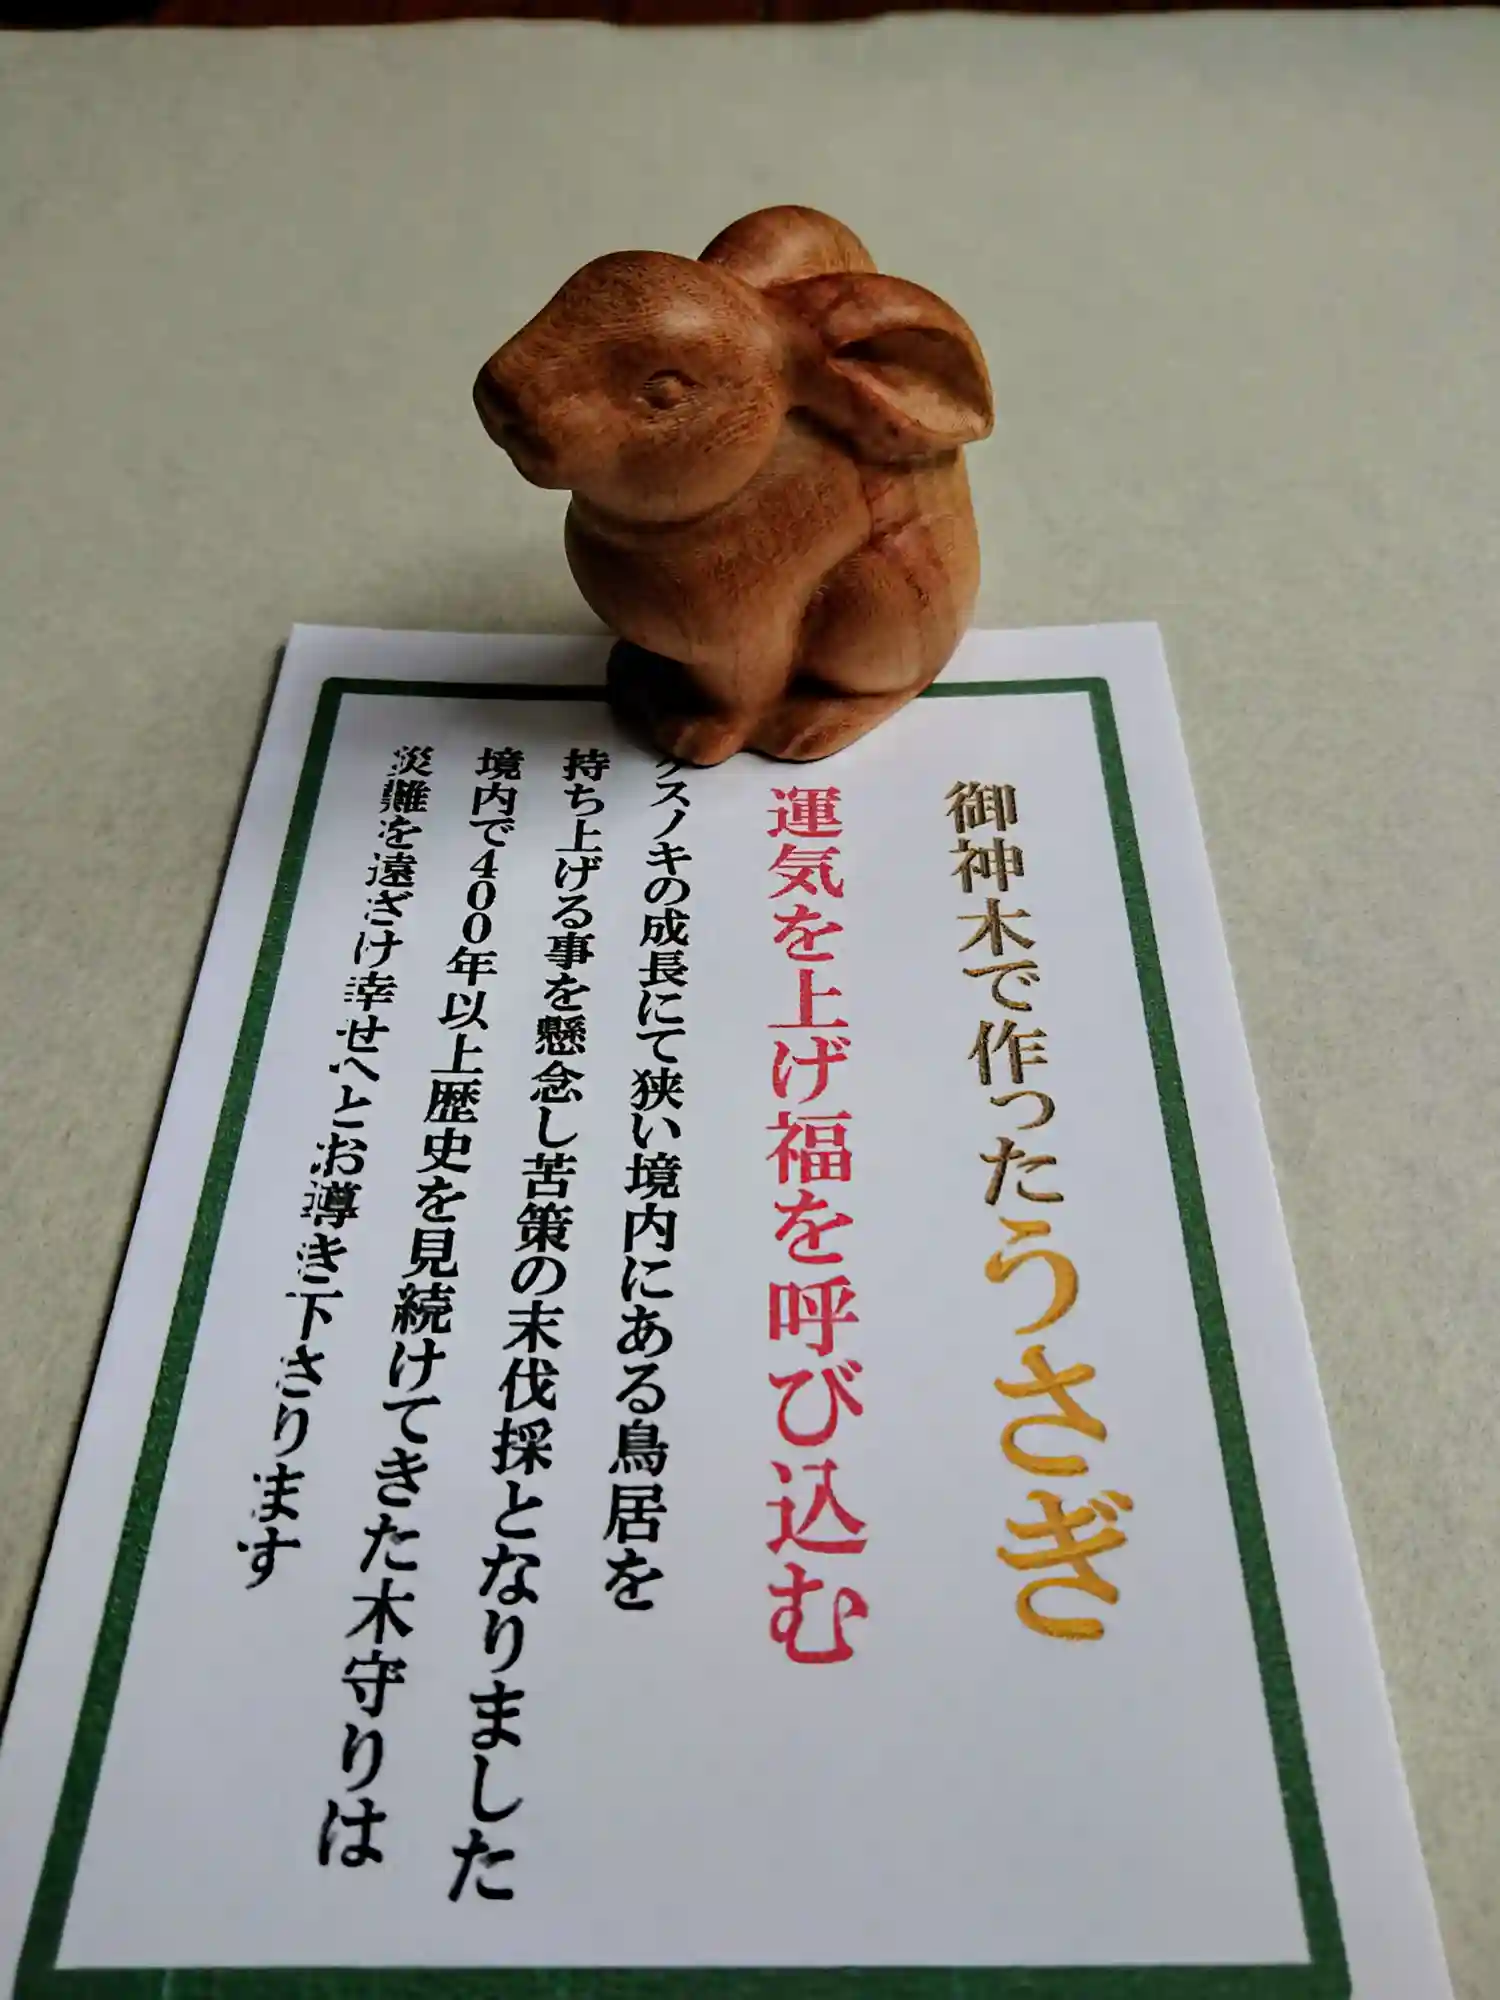 御神木で作ったうさぎ
運気を上げ福を呼び込む
クスノキの成長にて狭い境内にある鳥居を
持ち上げる事を懸念し苦策の末伐採となりました
境内で400年以上歴史を見続けてきた木守りは
災難を遠ざけ幸せへとお導き下さります